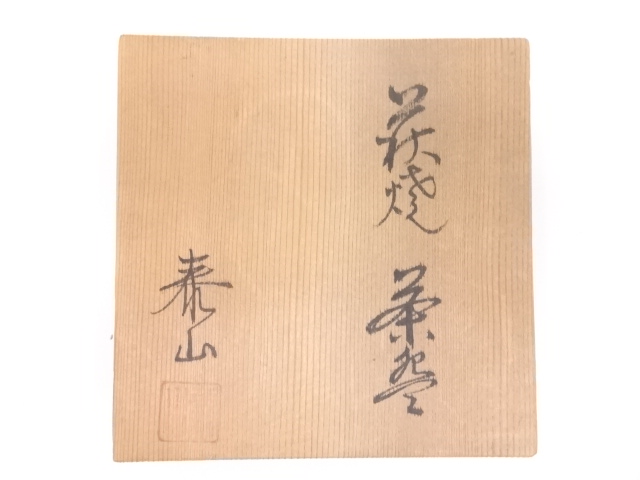 萩焼 茶盌
泰山